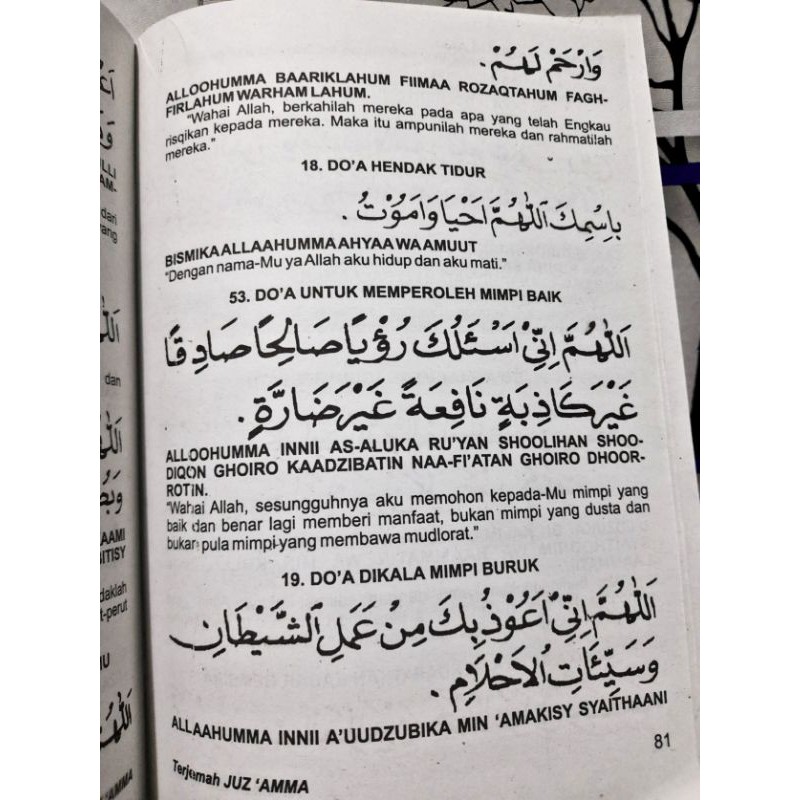 وَارْحَمْ لَهُمْ.
ALLOOHUMMA BAARIKLAHUM FIIMAA ROZAQTAHUM FAGH-
FIRLAHUM WARHAM LAHUM.
"Wahai Allah, berkahilah mereka pada apa yang telah Engkau
risqikan kepada mereka. Maka itu ampunilah mereka dan rahmatilah
mereka."
18. DO'A HENDAK TIDUR
بِاسْمِكَ اَللّٰهُمَّ اَحْيَا وَاَمُوْتُ.
BISMIKA ALLAAHUMMA AHYAA WA AMUUT
"Dengan nama-Mu ya Allah aku hidup dan aku mati."
53. DO'A UNTUK MEMPEROLEH MIMPI BAIK
اَللّٰهُمَّ اِنِّيْ اَسْئَلُكَ رُؤْيًا صَالِحًا صَادِقًا
غَيْرَ كَاذِبَةٍ نَافِعَةً غَيْرَ ضَارَّةٍ.
ALLOOHUMMA INNII AS-ALUKA RU'YAN SHOOLIHAN SHOO-
DIQON GHOIRO KAADZIBATIN NAA-FI'ATAN GHOIRO DHOOR-
ROTIN.
"Wahai Allah, sesungguhnya aku memohon kepada-Mu mimpi yang
baik dan benar lagi memberi manfaat, bukan mimpi yang dusta dan
bukan pula mimpi yang membawa mudlorat."
19. DO'A DIKALA MIMPI BURUK
اَللّٰهُمَّ اِنِّيْ اَعُوْذُ بِكَ مِنْ عَمَلِ الشَّيْطَانِ
وَسَيِّئَاتِ الْاَحْلَامِ.
ALLAAHUMMA INNII A'UUDZUBIKA MIN 'AMAKISY SYAITHAANI
81
Terjemah JUZ 'AMMA